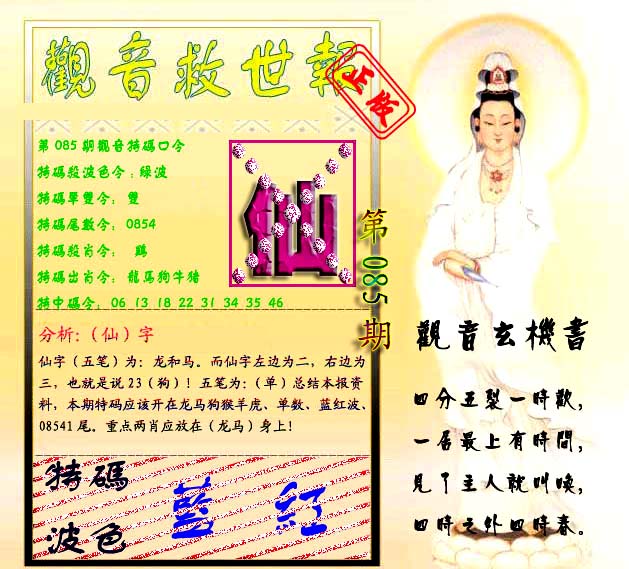 觀音救世報
正版
第085期觀音特碼口令
特碼殺波色令：綠波
特碼單雙令： 雙
特碼尾數令： 0854
特碼殺肖令： 鷄
特碼出肖令： 龍馬狗牛猪
特中碼令： 06 13 18 22 31 34 35 46
仙
第085期
分析:（仙）字
仙字（五笔）为：龙和马。而仙字左边为二，右边为
三，也就是说23（狗）！五笔为：（单）总结本报资
料，本期特码应该开在龙马狗猴羊虎、单数、蓝红波、
08541尾。重点两肖应放在（龙马）身上！
特碼
波色
藍 紅
觀音玄機書
四分五裂一時歡，
一居最上有時間，
見了主人就叫喚，
四時之外四時春。